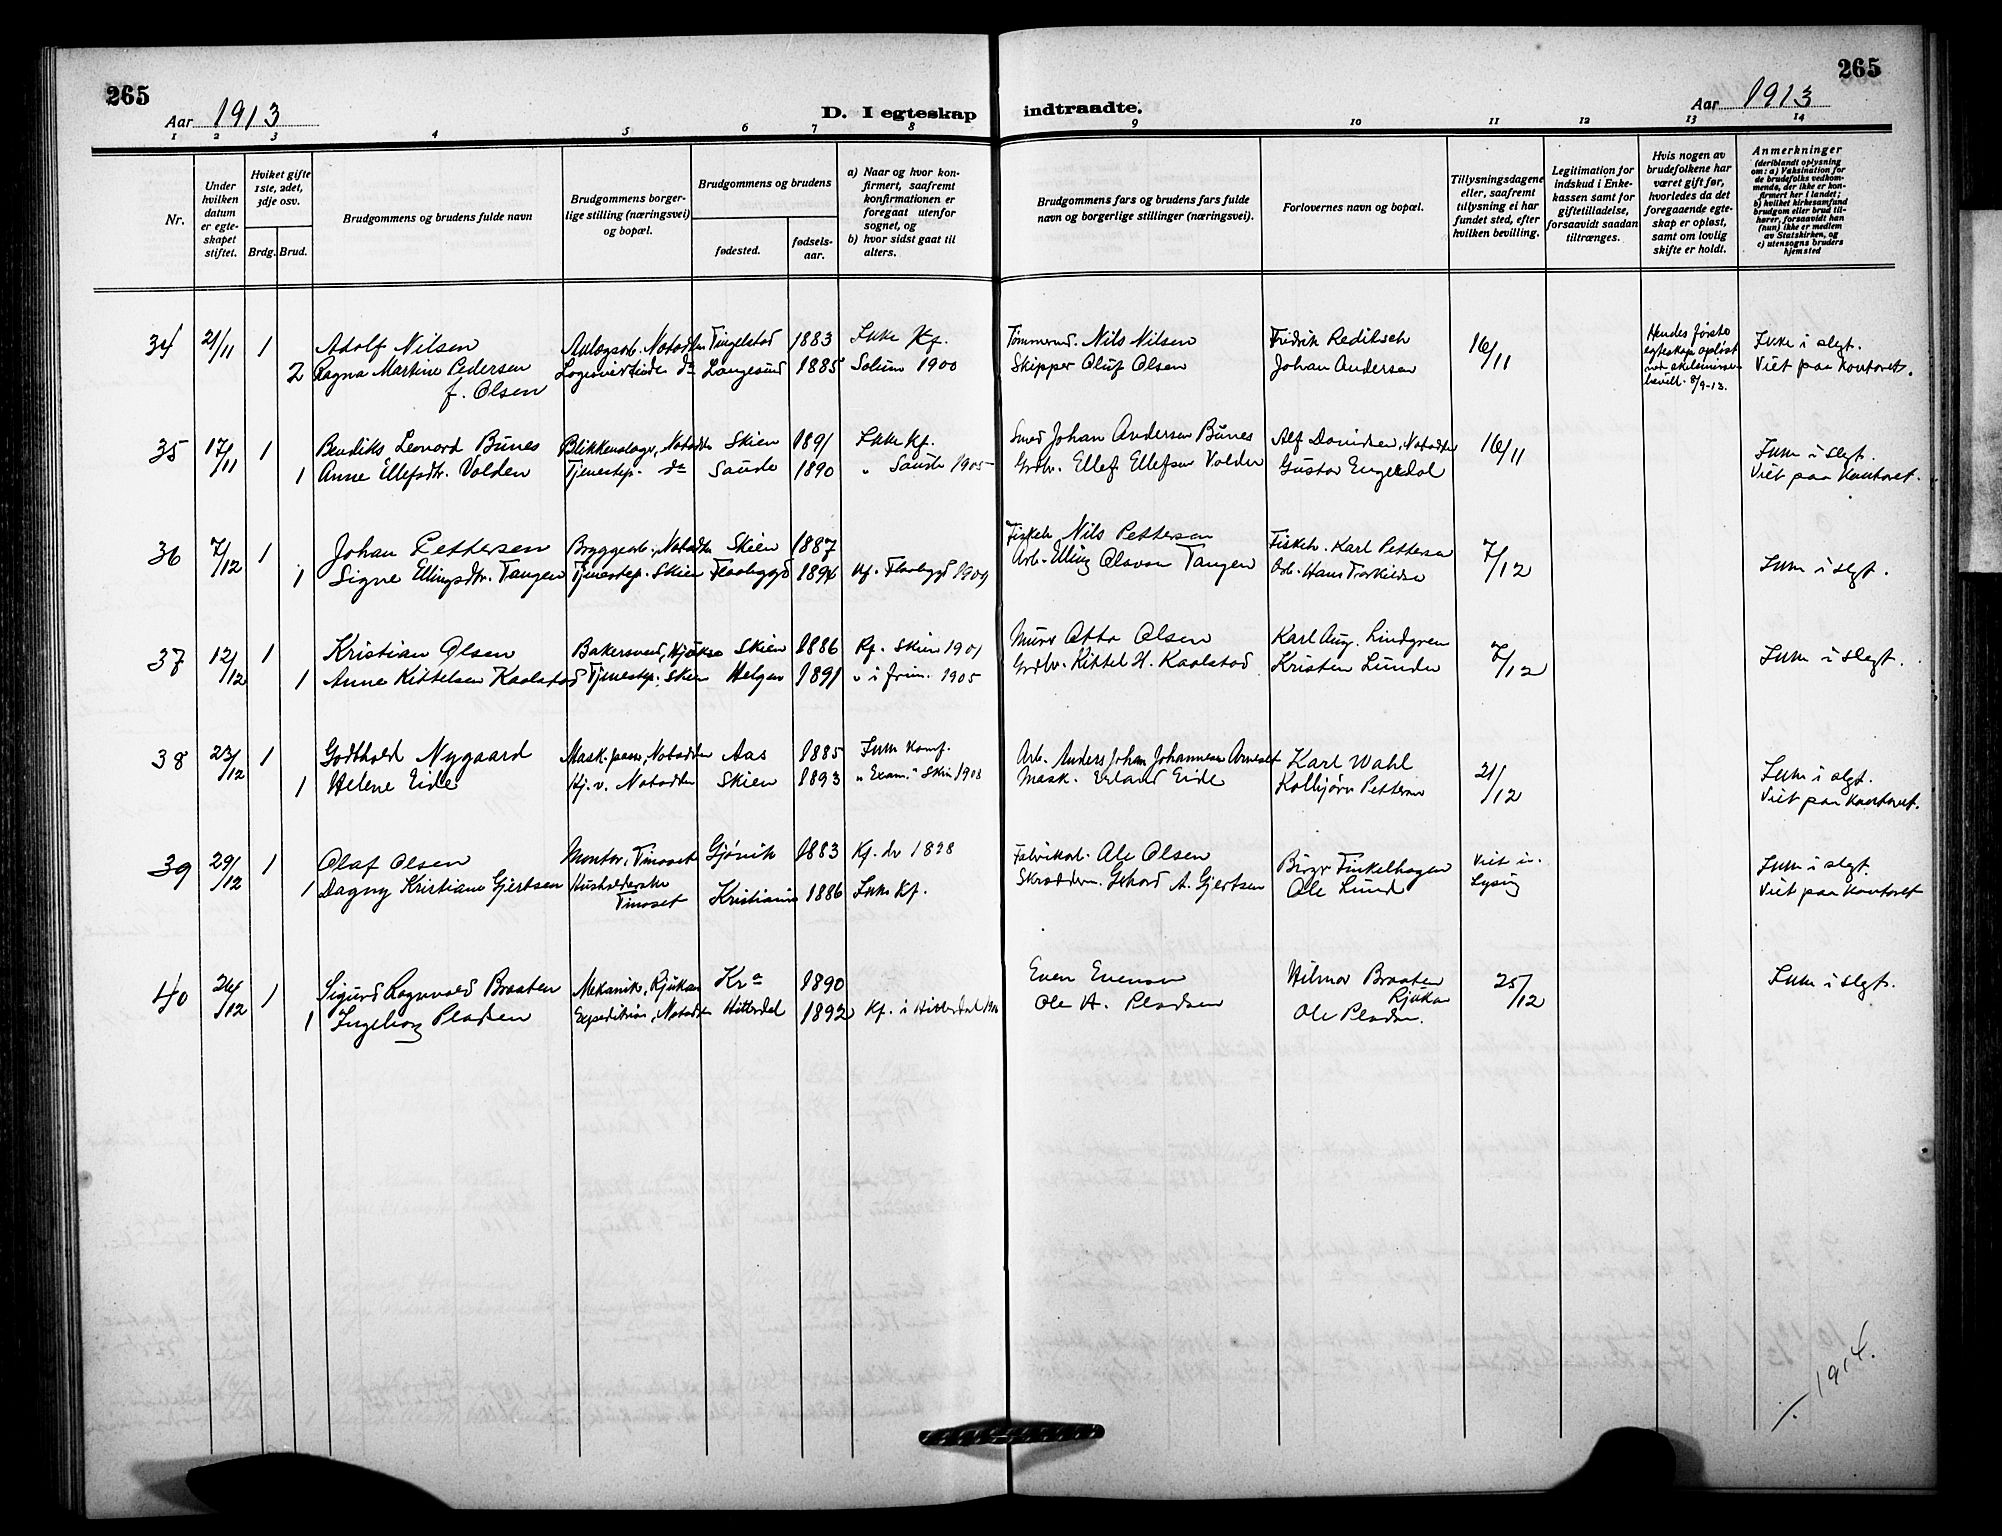 265
265
Aar 1913
D. I egteskap indtraadte.
Aar 1913
1 2 3 4 5 6 7 8 9 10 11 12 13 14
Nr.
Under hvilken datum er egteskapet stiftet.
Hviket gifte 1ste, 2det, 3dje osv.
Brdg. Brud.
Brudgommens og brudens fulde navn
Brudgommens borgerlige stilling (næringsvei) og bopæl.
Brudgommens og brudens
fødested.
fødselsaar.
a) Naar og hvor konfirmert, saafremt konfirmationen er foregaat utenfor sognet, og
b) hvor sidst gaat til alters.
Brudgommens fars og brudens fars fulde navn og borgerlige stillinger (næringsvei).
Forlovernes navn og bopæl.
Tillysningsdagene eller, saafremt tillysning ei har fundet sted, efter hvilken bevilling.
Legitimation for indskud i Enkekassen samt for giftetilladelse, forsaavidt saadan tiltrænges.
Hvis nogen av brudefolkene har været gift før, hvorledes da det foregaaende egteskap er opløst, samt om lovlig skifte er holdt.
Anmerkninger
(deriblandt oplysning om: a) Vaksination for de brudefolks vedkommende, der ikke er konfirmert her i landet;
b) hvilket kirkesamfund brudgom eller brud tilhører, forsaavidt han (hun) ikke er medlem av Statskirken, og
c) utensogns bruders hjemsted
34 21/11 1 Adolf Nilsen Anlægsarb. Notodden Tingelstad 1883 Ikke Kf. Tømmerm. Nils Nilsen Fredrik 16/11 Hendes første Ikke i slegt.
2 Ragna Martine Pedersen do Langesund 1885 Solum 1900 Skipper Oluf Olsen Johan Andersen egteskap opløst Viet paa Kontoret.
f. Olsen bevill. 8/9-13.
35 17/11 1 Bendiks Leonard Bunes Blikkenslager, Notodden Skien 1891 Ikke Kf. Smed Johan Andersen Bunes Alf Davidsen, Notodden 16/11 Ikke i slegt.
1 Anne Ellefsdtr. Volden Tjenestep. do Saude 1890 " Saude 1905 Grdbr. Ellef Ellefsen Volden Gustav Engedal Viet paa Kontoret.
36 7/12 1 Johan Pettersen Bryggearb., Notodden Skien 1887 Fiskeh. Nils Pettersen Fiskeh. Karl Pettersen 7/12 Ikke i slegt.
1 Signe Ellingsdtr. Tangen Tjenestep. Skien Flaabygd 1894 Kf. Flaabygd 1909 Arb. Elling Olavson Tangen Arb. Hans Torkildsen
37 12/12 1 Kristian Olsen Bakersvend, Hjukse Skien 1886 Kf. Skien 1901 Murer Otto Olsen Karl Aug. Lindgren 7/12 Ikke i slegt.
1 Anne Kittelsen Kaalstad Tjenestep. Skien Helgen 1891 " i 1905 Grdbr. Kittel H. Kaalstad Kristen Lunden
38 23/12 1 Godthold Nygaard Mask.pass., Notodden Aas 1885 Ikke konf. Arb. Anders Johan Johannesen Karl Wahl 21/12 Ikke i slegt.
1 Helene Eide Hj. v. Notodden Skien 1893 " Skien 1908 Mask. Erland Eide Kolbjørn Pettersen Viet paa Kontoret.
39 29/12 1 Olaf Olsen Montør, Tinoset Gjøvik 1883 Kf. 1898 Fabrikarb. Ole Olsen Birger Finkelhagen Viet u. Ikke i slegt.
1 Dagny Kristiane Gjertsen Husholderske Tinoset Kristiania 1886 Ikke Kf. Skrædderm. A. Gjertsen Ole Lund Lysing Viet paa Kontoret
40 26/12 1 Sigurd Ragnvald Braaten Mekanik., Rjukan Kra 1890 Even Evensen Hilmar Braaten 25/12 Ikke i slegt.
Rjukan
1 Ingeborg Pladsen Notodden Hitterdal 1892 Kf. i Hitterdal Ole A. Pladsen Ole Pladsen.
1914.